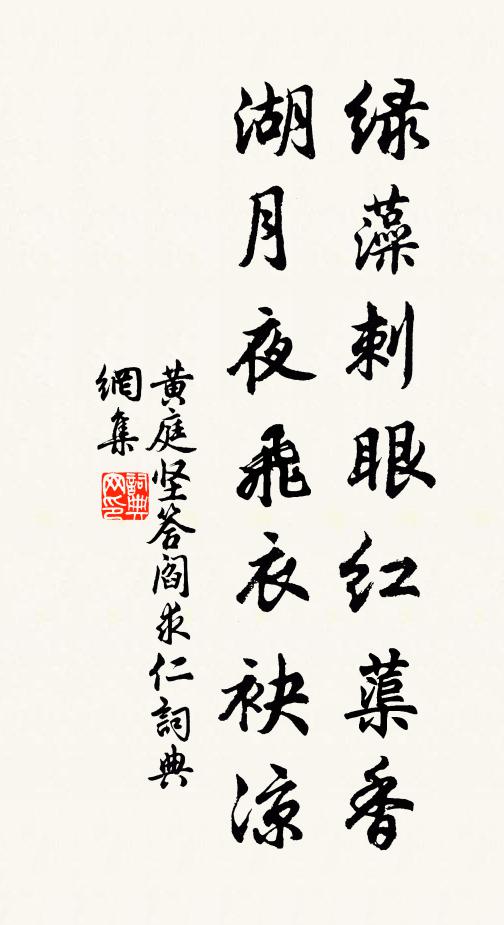 绿藻刺眼红蕖香
湖月夜飛衣袂涼
黄庭坚答阎求仁詞典
網集
詞典网印